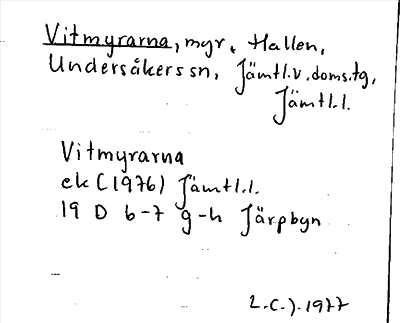 Vitmyrarna, myr, Hallen,
Undersåkers sn, Jämtl.v.doms.tg,
Jämtl.l.
Vitmyrarna
ek (1976) Jämtl.l.
19 D 6-7 g-h Järpbyn
2.C.J.1977